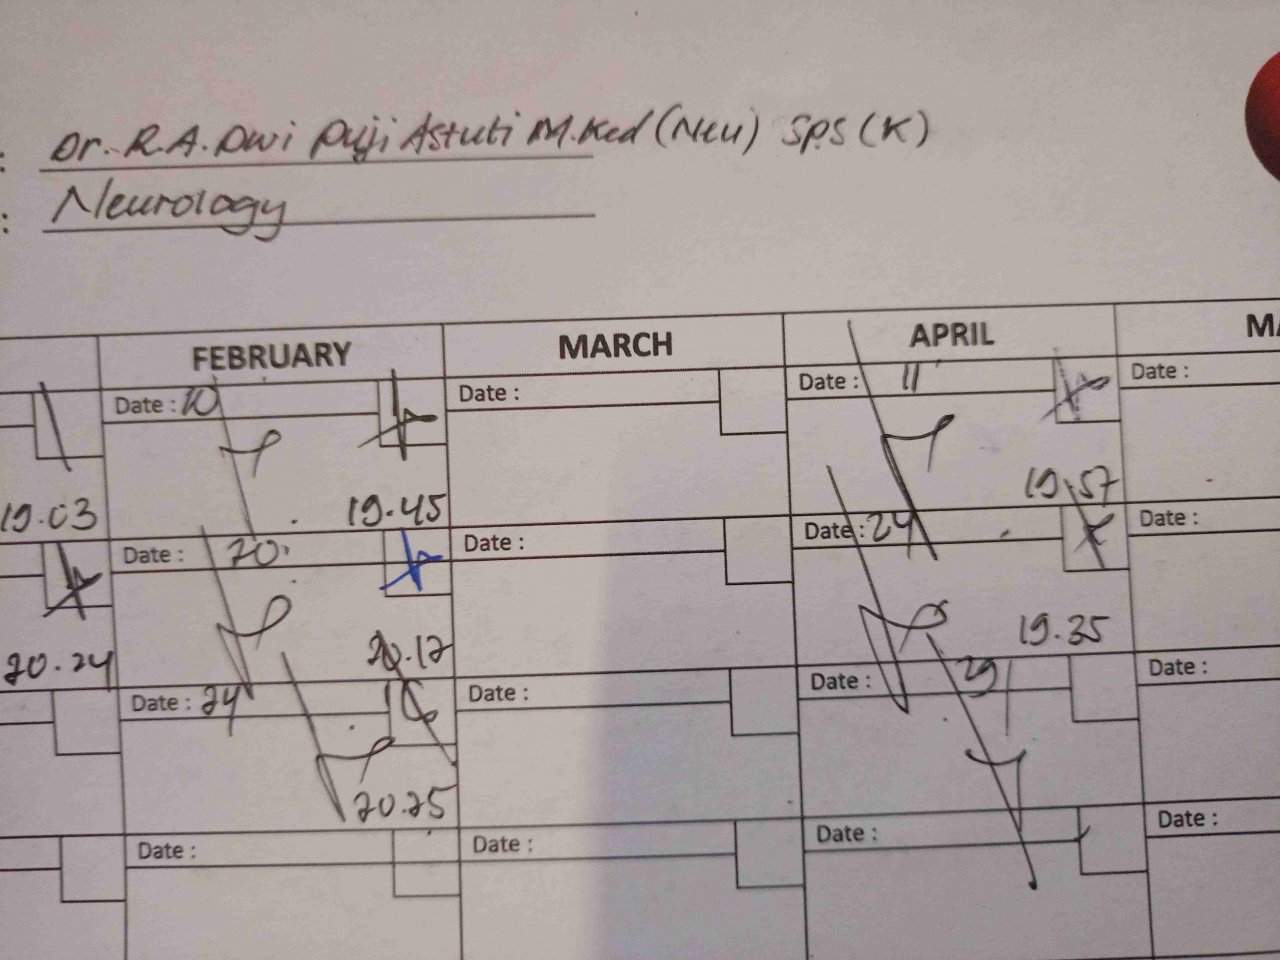 : Dr. R.A. Dwi Puji Astuti M.Ked (Neu) Sps (K)
: Neurology
FEBRUARY MARCH APRIL MA
Date : 10 Date : Date : 11 Date :
19.03 19.45 19.57
Date : 20 Date : Date : 24 Date :
20.24 20.12 19.35
Date : 24 Date : Date : 29 Date :
20.25
Date : Date : Date : Date :